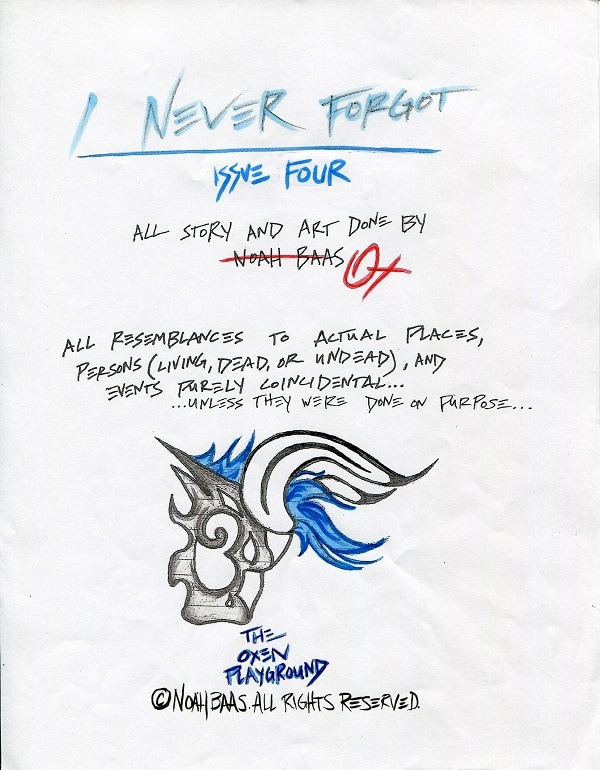 I NEVER FORGOT
ISSUE FOUR
ALL STORY AND ART DONE BY
NOAH BAAS Ox
ALL RESEMBLANCES TO ACTUAL PLACES,
PERSONS (LIVING, DEAD, OR UNDEAD), AND
EVENTS PURELY COINCIDENTAL...
...UNLESS THEY WERE DONE ON PURPOSE...
THE
OXEN
PLAYGROUND
©NOAH BAAS. ALL RIGHTS RESERVED.